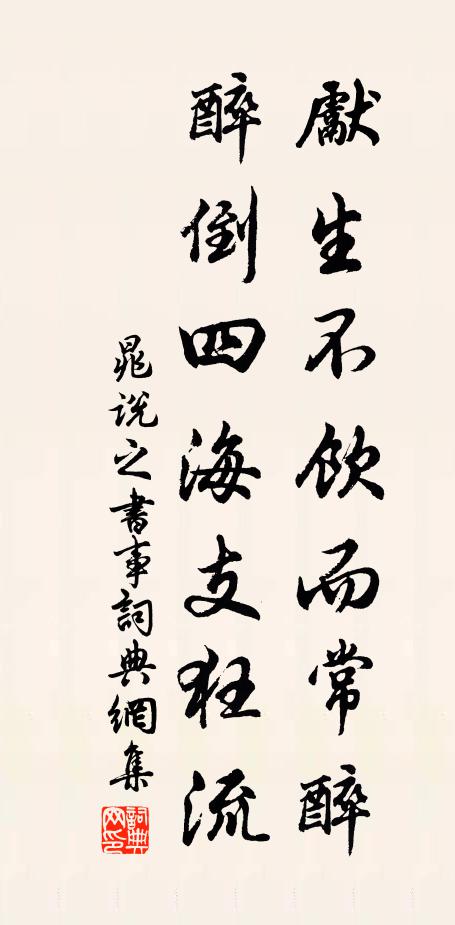 獻生不飲而常醉
醉倒四海支狂流
晁說之書事詞典網集
詞典网印